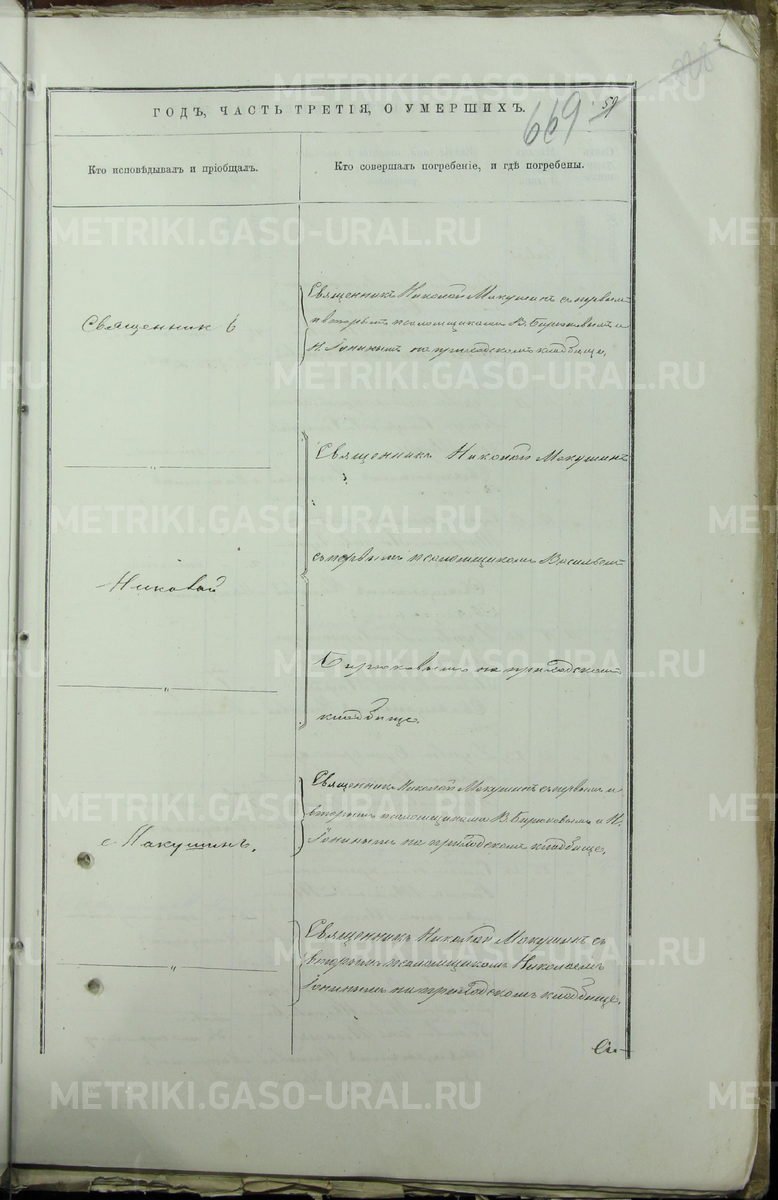 669
ГОДЪ, ЧАСТЬ ТРЕТІЯ, О УМЕРШИХЪ.
Кто исповѣдывалъ и пріобщалъ.
Кто совершалъ погребеніе, и гдѣ погребены.
Священникъ
Николай
Макушинъ.
Священникъ Николай Макушинъ съ первымъ
и вторымъ псаломщиками В. Бирюковымъ и
Н. Гонинымъ на приходскомъ кладбище,
Священникъ Николай Макушинъ
съ первымъ псаломщикомъ Василіемъ
Бирюковымъ на приходскомъ
кладбище.
Священникъ Николай Макушинъ съ первымъ и
вторымъ псаломщиками В. Бирюковымъ и Н.
Гонинымъ на приходскомъ кладбище.
Священникъ Николай Макушинъ съ
вторымъ псаломщикомъ Николаемъ
Гонинымъ на приходскомъ кладбище.
METRIKI.GASO-URAL.RU